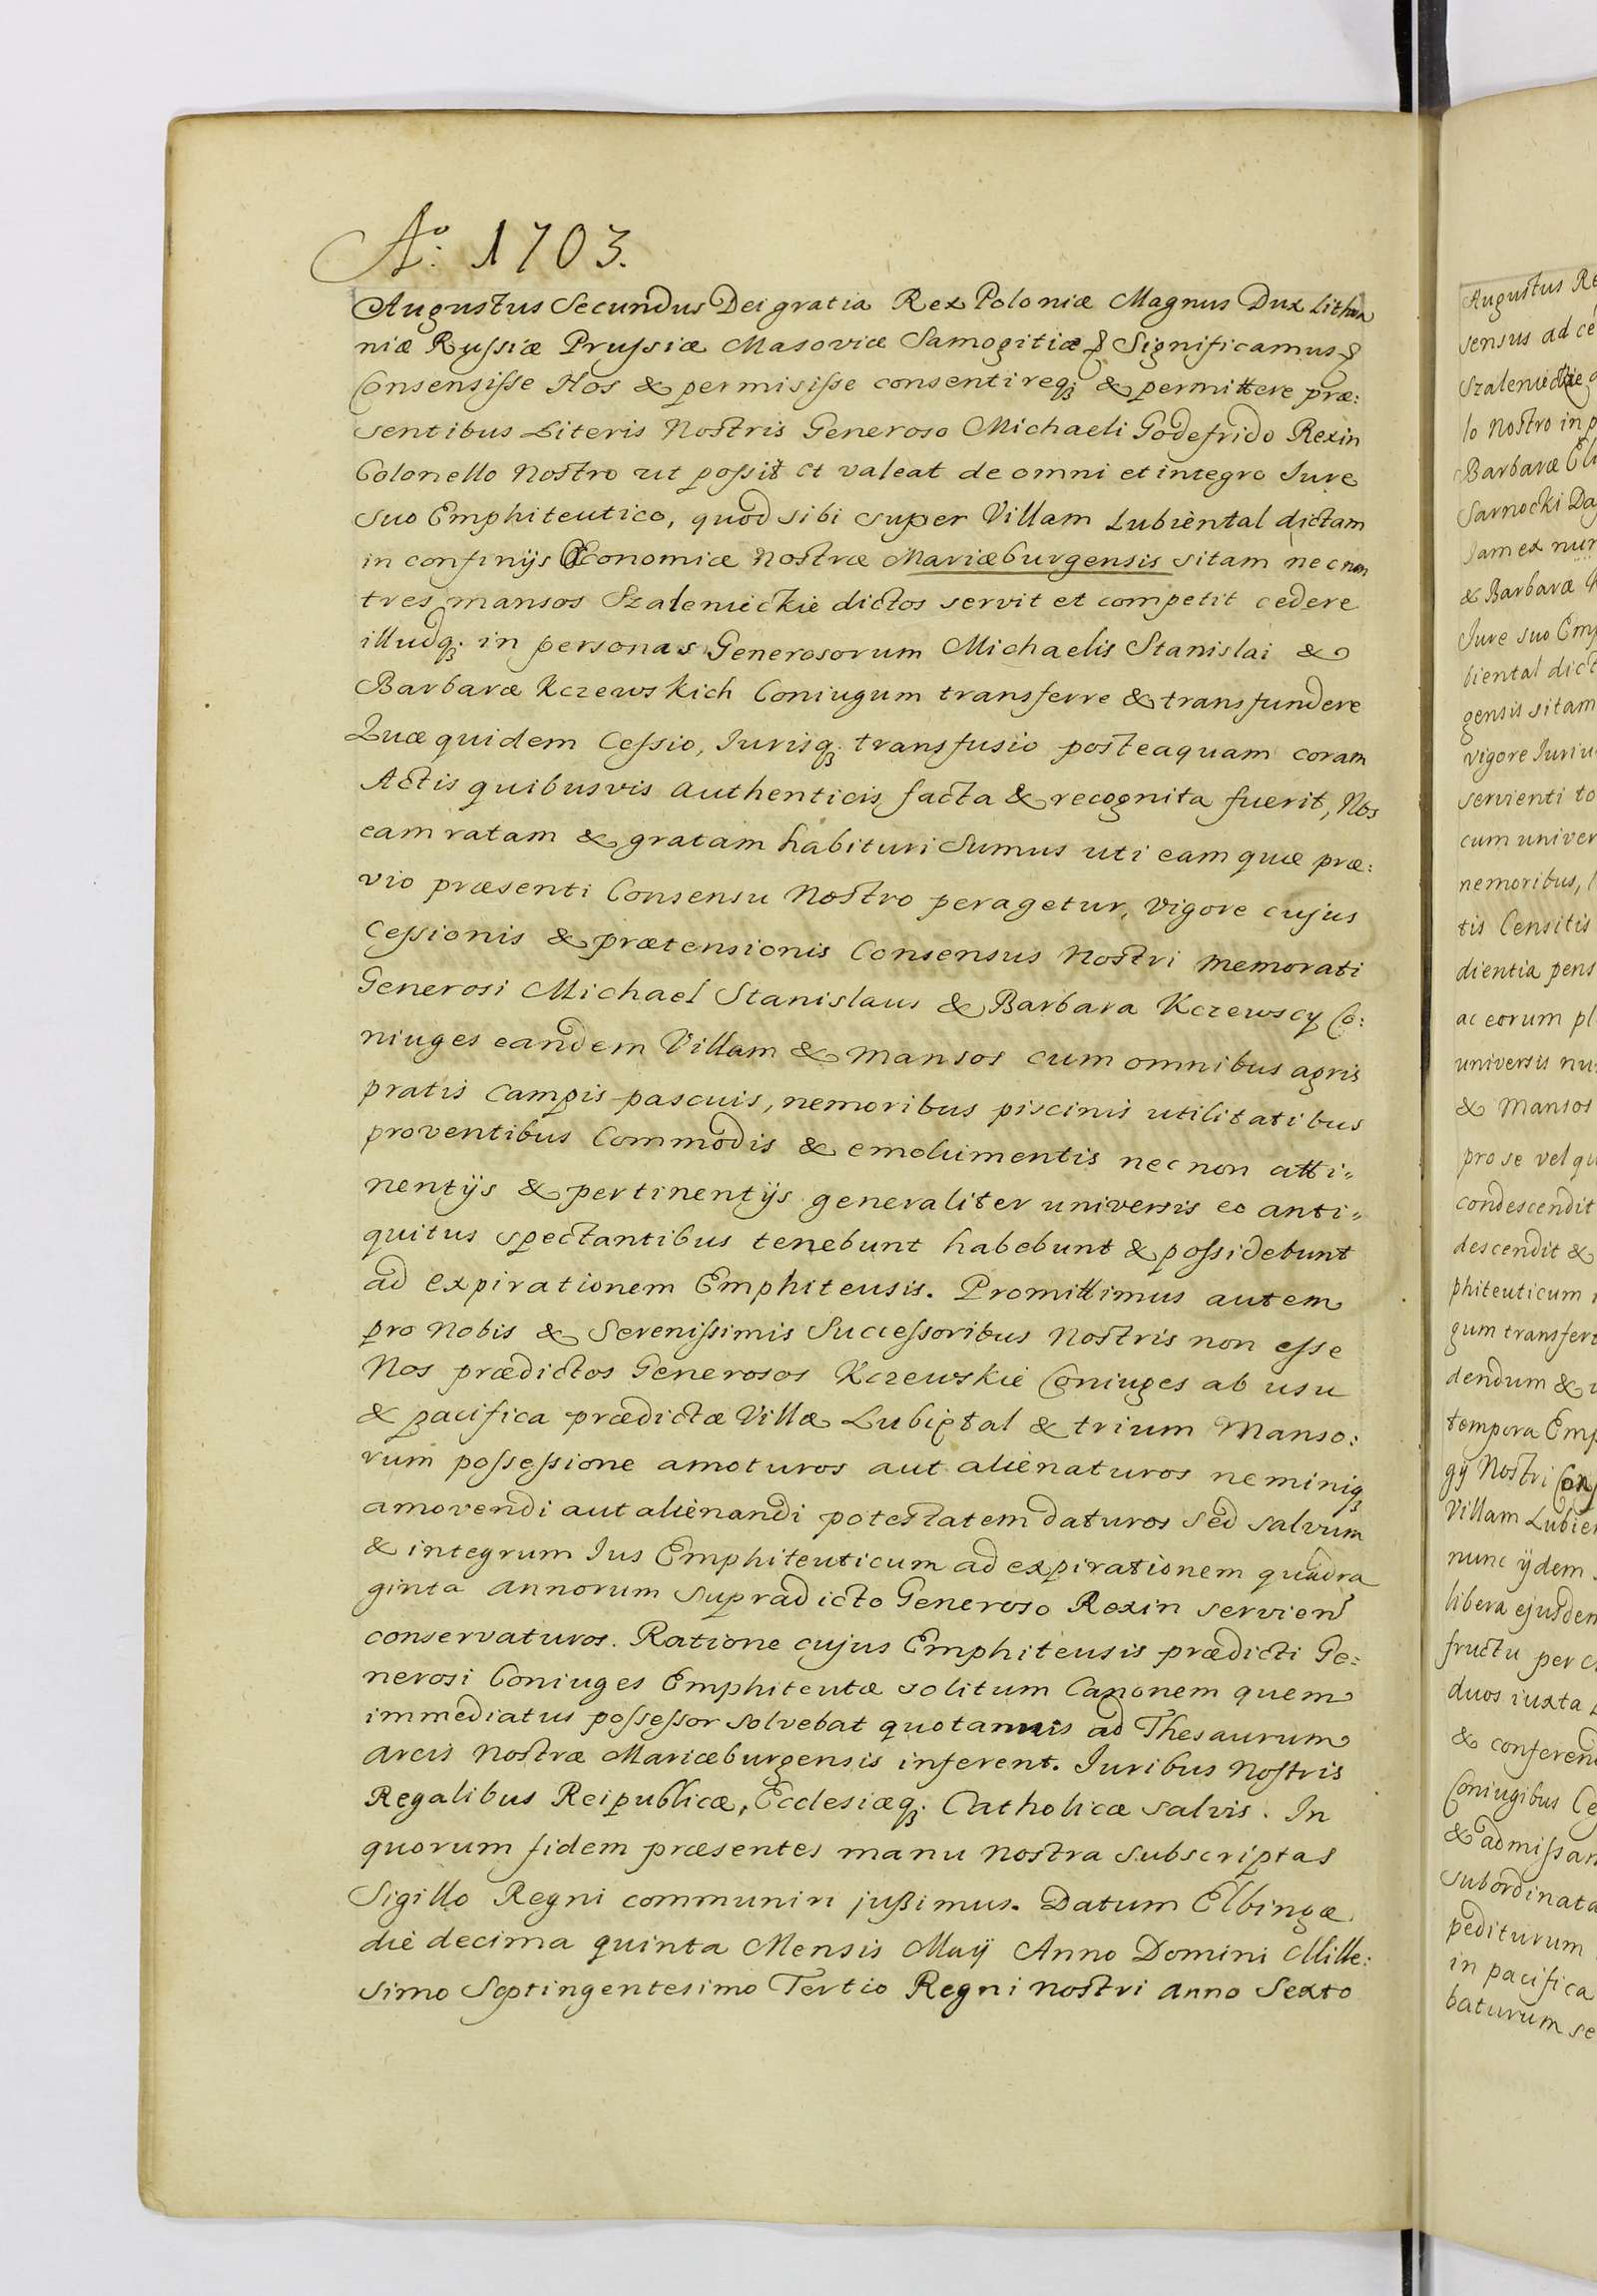 Aº: 1703.
Augustus Secundus Dei gratia Rex Poloniæ Magnus Dux Lithua
niæ Russiæ Prussiæ Masoviæ Samogitiæ & Significamus &
Consensisse Nos & permisisse consentireq; & permittere præ:
sentibus Literis Nostris Generoso Michaeli Godefrido Rexin
Colonello Nostro ut possit et valeat de omni et integro Jure
suo Emphiteutico, quod sibi super Villam Lubiental dictam
in confinijs Œconomiæ Nostræ Mariæburgensis sitam nec non
tres mansos Szalenieckie dictos servit et competit cedere
illudq; in personas Generosorum Michaelis Stanislai &
Barbaræ Kczewskich Coniugum transferre & transfundere
Quæ quidem Cessio, Jurisq; transfusio posteaquam coram
Actis quibusvis authenticis facta & recognita fuerit, Nos
eam ratam & gratam habituri sumus uti eam quæ præ:
vio præsenti Consensu Nostro peragetur, vigore cujus
Cessionis & prætensionis Consensus Nostri memorati
Generosi Michael Stanislaus & Barbara Kczewscy Co:
niuges eandem Villam & mansos cum omnibus agris
pratis campis pascuis, nemoribus piscinis utilitatibus
proventibus Commodis & emolumentis nec non atti=
nentijs & pertinentijs generaliter universis eo anti=
quitus spectantibus tenebunt habebunt & possidebunt
ad expirationem Emphiteusis. Promittimus autem
pro Nobis & Serenissimis Successoribus Nostris non esse
Nos prædictos Generosos Kczewskie Coniuges ab usu
& pacifica prædictæ Villæ Lubiętal & trium Manso:
rum possessione amoturos aut alienaturos neminiq;
amovendi aut alienandi potestatem daturos sed salvum
& integrum Jus Emphiteuticum ad expirationem quadra
ginta annorum supradicto Generoso Rexin servien
conservaturos. Ratione cujus Emphiteusis prædicti Ge:
nerosi Coniuges Emphiteutæ solitum Canonem quem
immediatus possessor solvebat quotannis ad Thesaurum
Arcis Nostræ Mariæburgensis inferent. Juribus Nostris
Regalibus Reipublicæ, Ecclesiæq; Catholicæ salvis. In
quorum fidem præsentes manu nostra subscriptas
Sigillo Regni communiri jußimus. Datum Elbingæ
die decima quinta Mensis Maij Anno Domini Mille:
simo Septingentesimo Tertio Regni nostri anno Sexto
Augustus Re
sensus ad ce
Szalenieckie
lo Nostro in p
Barbaræ El
Sarnocki Da
Jam ex nun
& Barbaræ K
Jure suo Emp
biental dict
gensis sitam
vigore Juriu
servienti to
cum univer
nemoribus, l
tis Censitis
dientia pens
ac eorum pl
universis nu
& Mansos
pro se vel qu
condescendit
descendit &
phiteuticum
gum transfert
dendum &
tempora Emp
gij Nostri Con
Villam Lubien
nunc ijdem
libera ejusdem
fructu perci
duos iuxta
& conferend
Coniugibus Ce
& admissan
subordinata
pediturum
in pacifica
baturum se